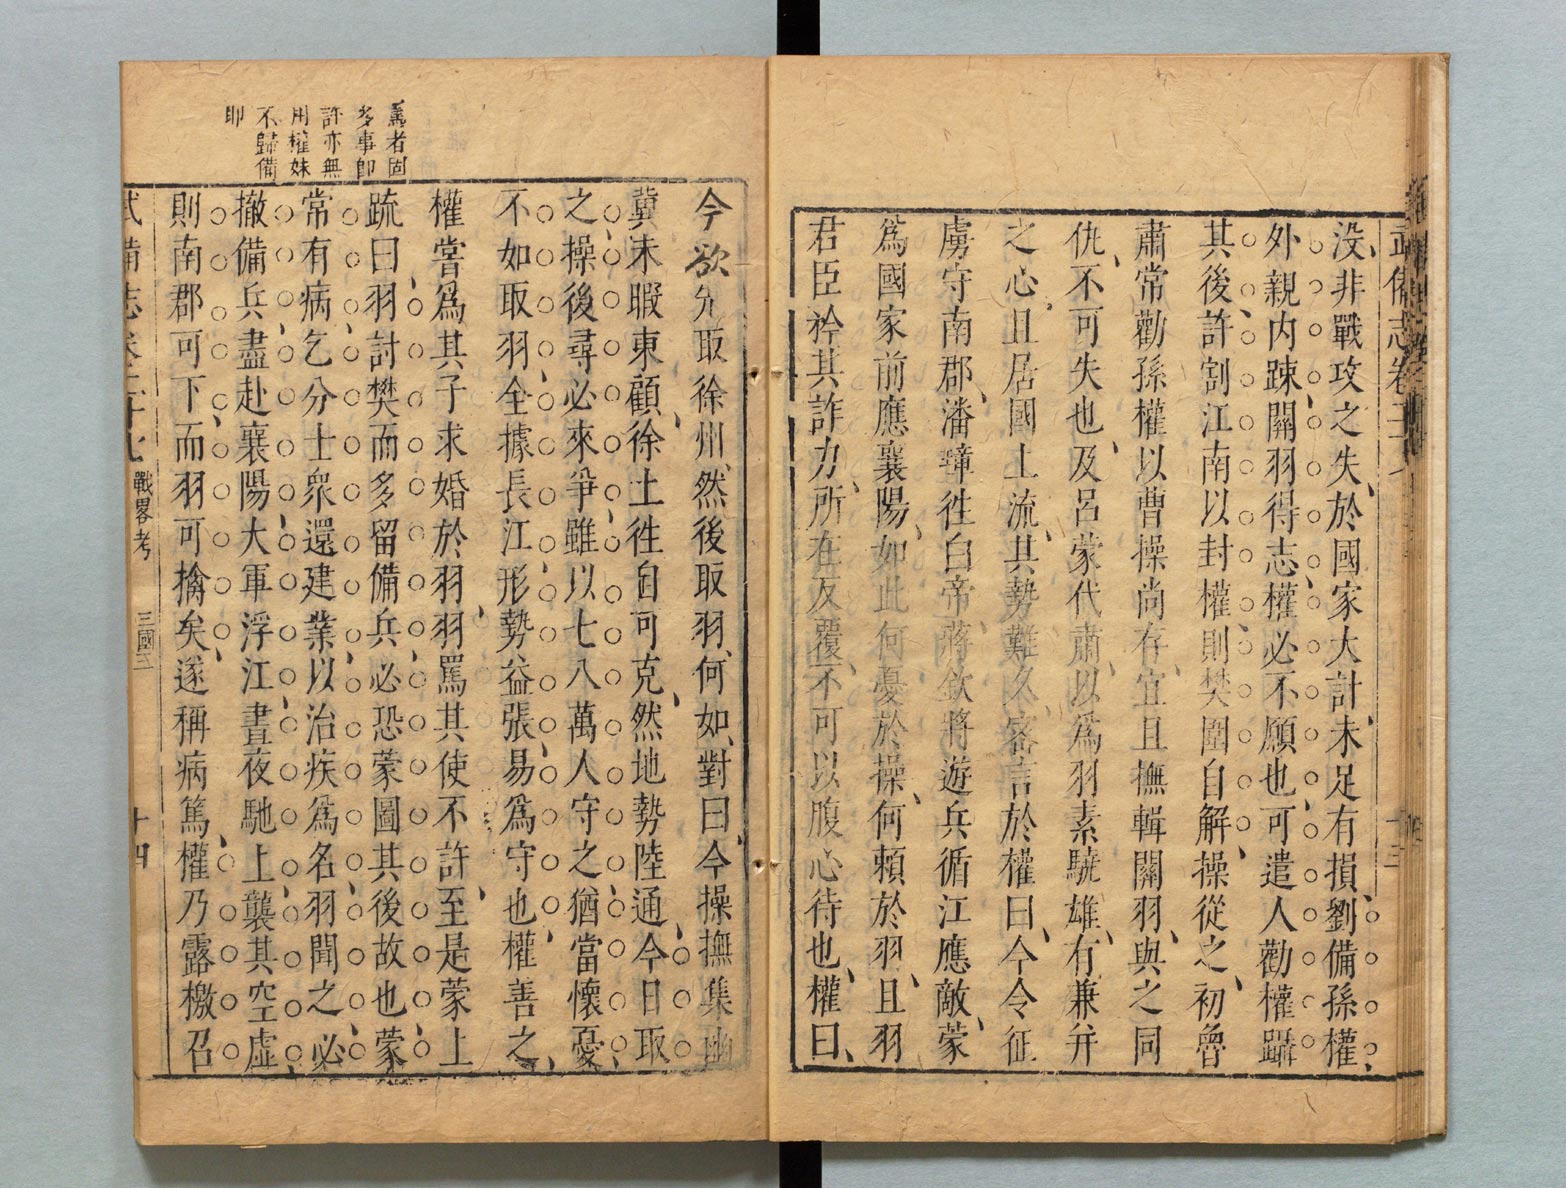 武備志卷三十八
十三
没非戰攻之失於國家大計未足有損劉備孫權
外親内踈關羽得志權必不願也可遣人勸權躡
其後許割江南以封權則樊圍自解操從之初魯
肅常勸孫權以曹操尚存宜且撫輯關羽與之同
仇不可失也及呂蒙代肅以爲羽素驍雄有兼并
之心且居國上流其勢難久密言於權曰今令征
虜守南郡潘璋徃白帝蔣欽將遊兵循江應敵蒙
爲國家前應襄陽如此何憂於操何賴於羽且羽
君臣矜其詐力所在反覆不可以腹心待也權曰
今欲先取徐州然後取羽何如對曰今操撫集幽
冀未暇東顧徐土徃自可克然地勢陸通今日取
之操後尋必來爭雖以七八萬人守之猶當懷憂
不如取羽全據長江形勢益張易爲守也權善之
權嘗爲其子求婚於羽羽罵其使不許至是蒙上
疏曰羽討樊而多留備兵必恐蒙圖其後故也蒙
常有病乞分士衆還建業以治疾爲名羽聞之必
撤備兵盡赴襄陽大軍浮江晝夜馳上襲其空虛
則南郡可下而羽可擒矣遂稱病篤權乃露檄召
罵者固
多事即
許亦無
用權妹
不歸備
耶
武備志卷三十八 戰畧考 三國三 十四